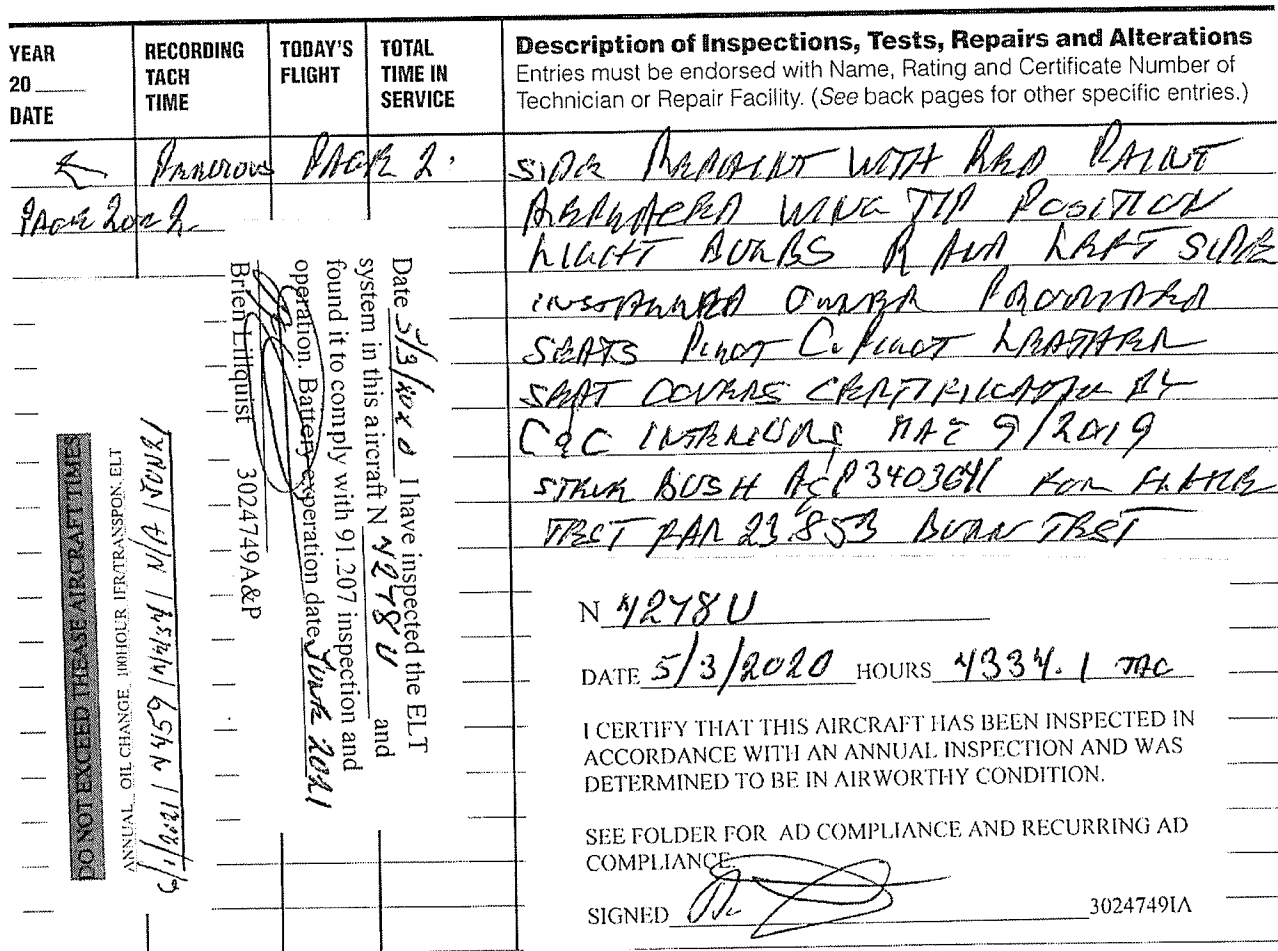 YEAR
20 ____
DATE
RECORDING
TACH
TIME
TODAY'S
FLIGHT
TOTAL
TIME IN
SERVICE
Description of Inspections, Tests, Repairs and Alterations
Entries must be endorsed with Name, Rating and Certificate Number of
Technician or Repair Facility. (See back pages for other specific entries.)
PREVIOUS PAGE 2.
PAGE 2 OF 2.
SIDE REPAINT WITH RED PAINT
REPLACED WING TIP POSITION
LIGHT BULBS R AND LEFT SIDE
INSTALLED OWNER PROVIDED
SEATS PILOT CoPILOT LEATHER
SEAT COVERS CERTIFICATION BY
C&C INTERIORS MAE 9/2019
BUSH A&P 3403641 FOR
TEST FAR 23.853 BURN TEST
N 4278U
DATE 5/3/2020 HOURS 4334.1 TAC
I CERTIFY THAT THIS AIRCRAFT HAS BEEN INSPECTED IN
ACCORDANCE WITH AN ANNUAL INSPECTION AND WAS
DETERMINED TO BE IN AIRWORTHY CONDITION.
SEE FOLDER FOR AD COMPLIANCE AND RECURRING AD
COMPLIANCE.
SIGNED 3024749IA
Date 5/3/2020 I have inspected the ELT
system in this aircraft N 4278U and
found it to comply with 91.207 inspection and
operation. Battery experation date JUNE 2021
Brien Lillquist 3024749A&P
DO NOT EXCEED THEASE AIRCRAFT TIMES
ANNUAL, OIL CHANGE, 100HOUR IFR/TRANSPON, ELT